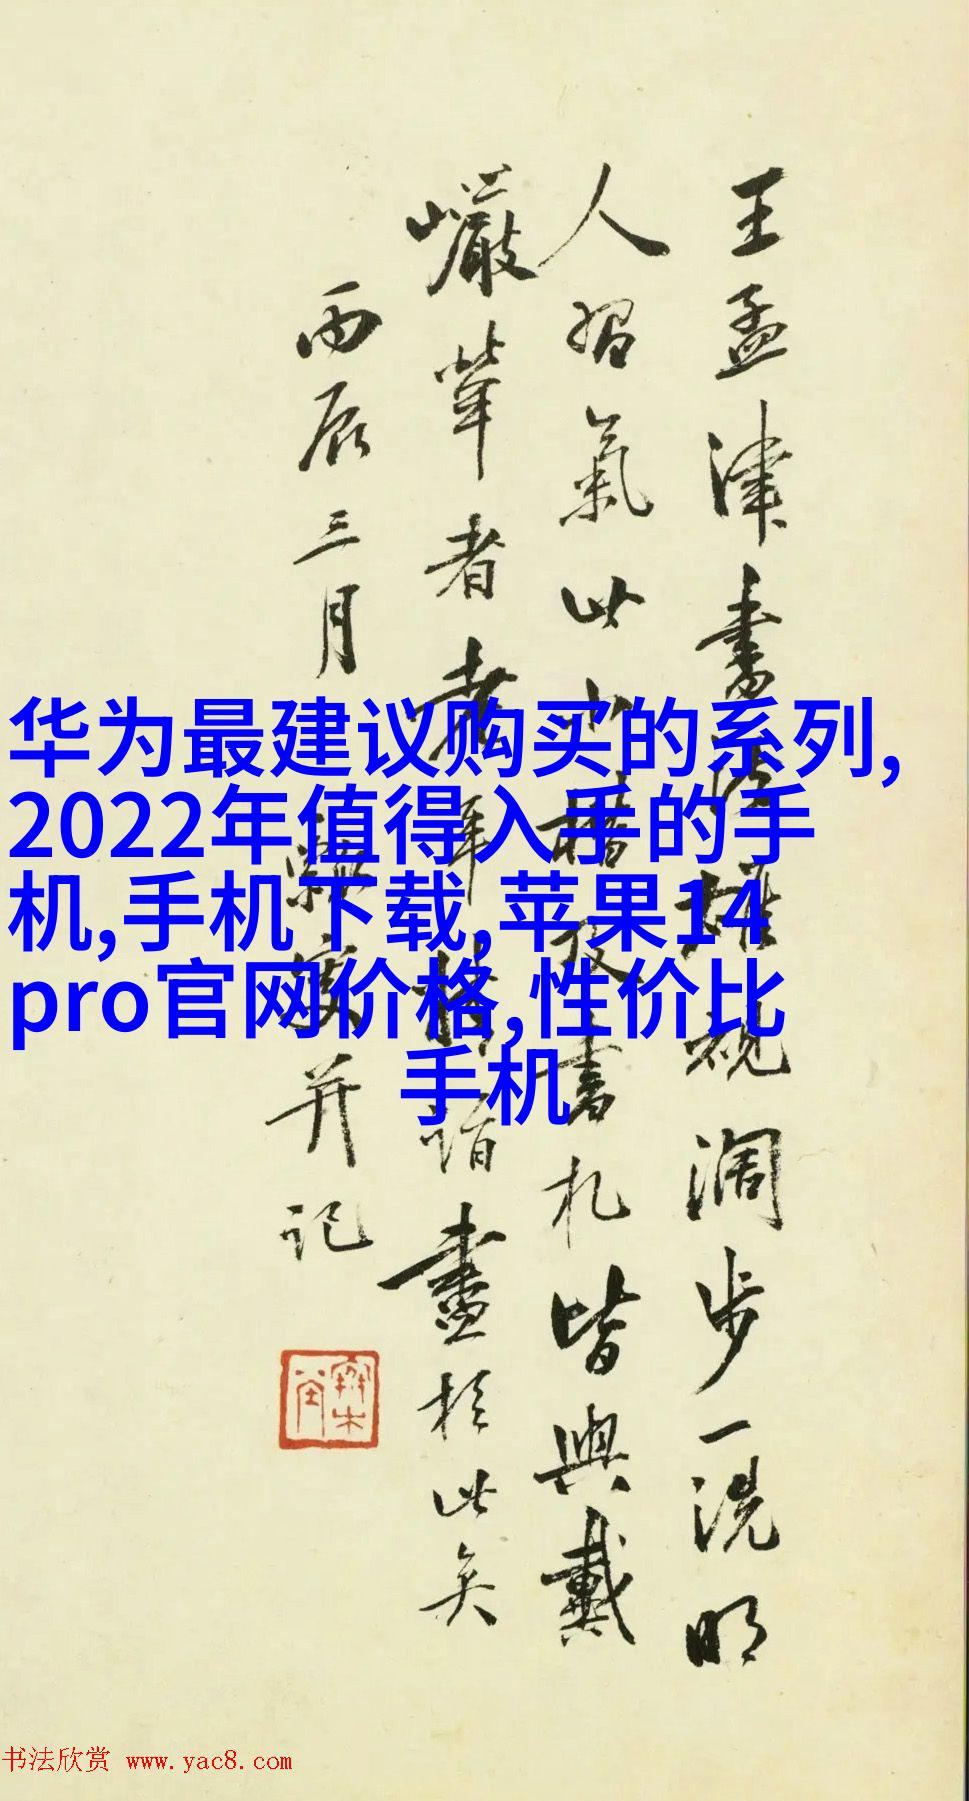 王孟津書法雄視阔步一洗明
人習氣此小楷及書札皆與戴
巖犖者
丙辰三月
并記
畫於此矣
华为最建议购买的系列,
2022年值得入手的手
机,手机下载,苹果14
pro官网价格,性价比
手机
书法欣赏 www.yac8.com